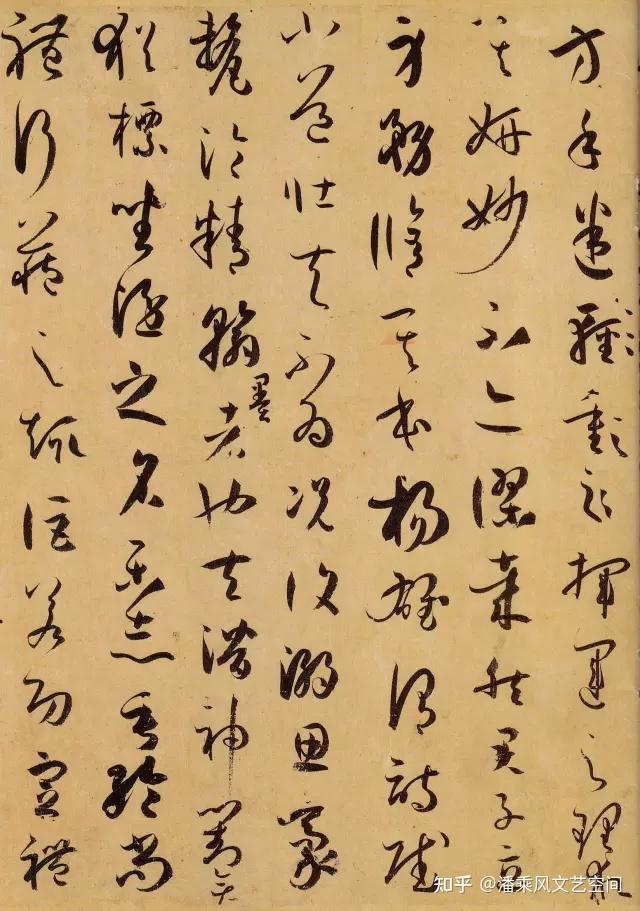 方手迷輕重揮運之理求
其妍妙不亦謬哉然君子立
身務脩其本楊雄謂詩賦
小道壯夫不為況復溺思豪
氂淪精翰墨者也夫潛神對弈
猶標坐隱之名樂志垂綸尚
體行藏之趣詎若功宣禮
知乎 @潘乘风文艺空间